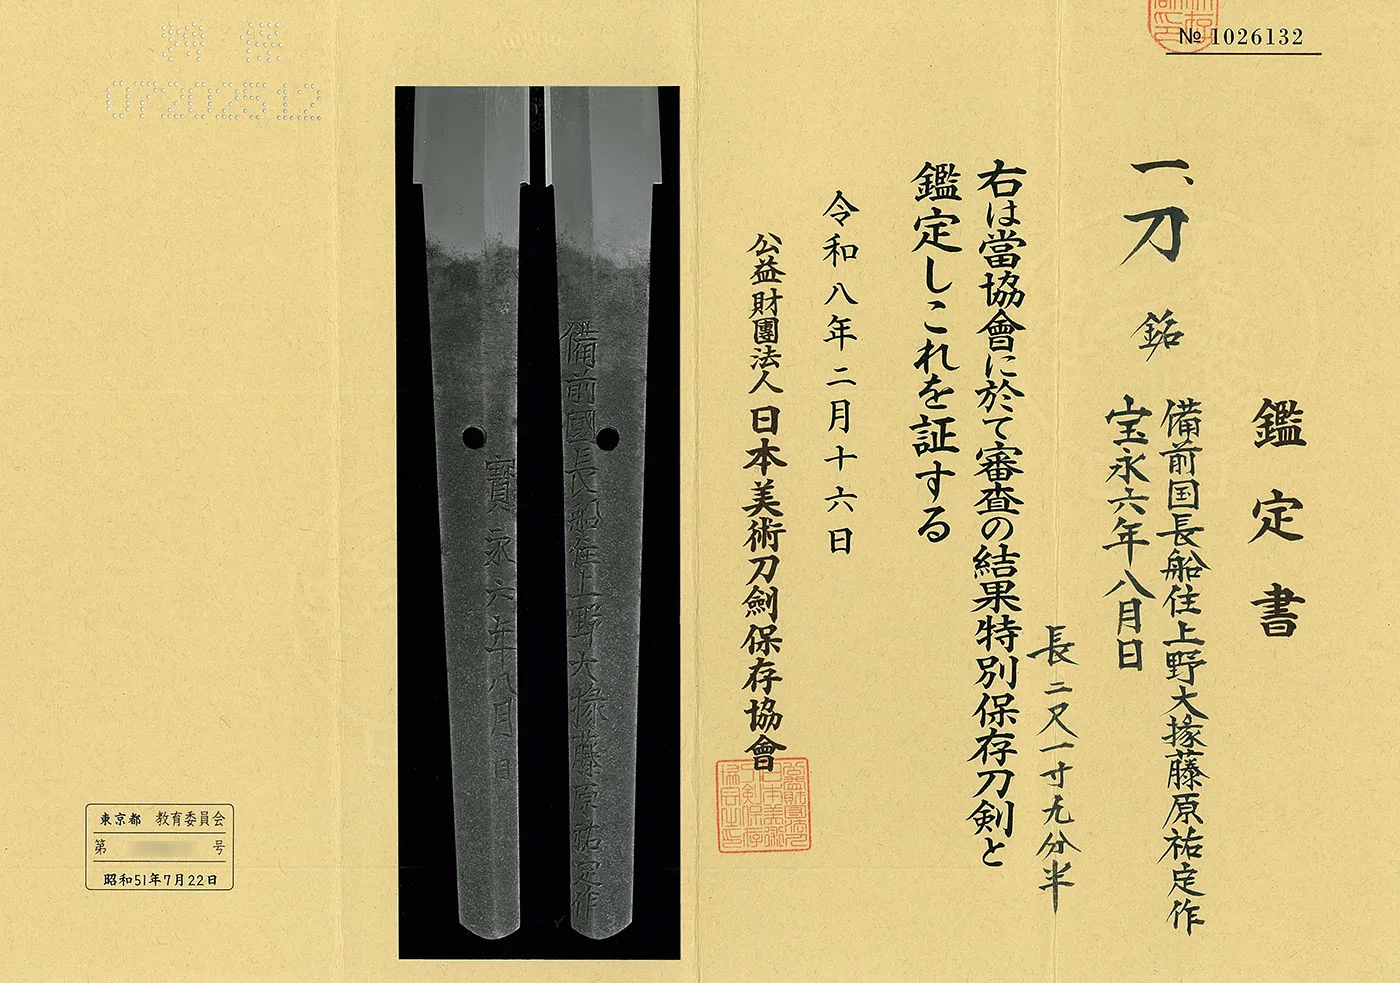 № 1026132
鑑定書
一、刀 銘 備前国長船住上野大掾藤原祐定作
宝永六年八月日
長二尺一寸九分半
右は當協會に於て審査の結果特別保存刀剣と
鑑定しこれを証する
令和八年二月十六日
公益財團法人日本美術刀劍保存協會
備前國長船住上野大掾藤原祐定作
寳永六年八月日
07202512
東京都 教育委員会
第 号
昭和51年7月22日